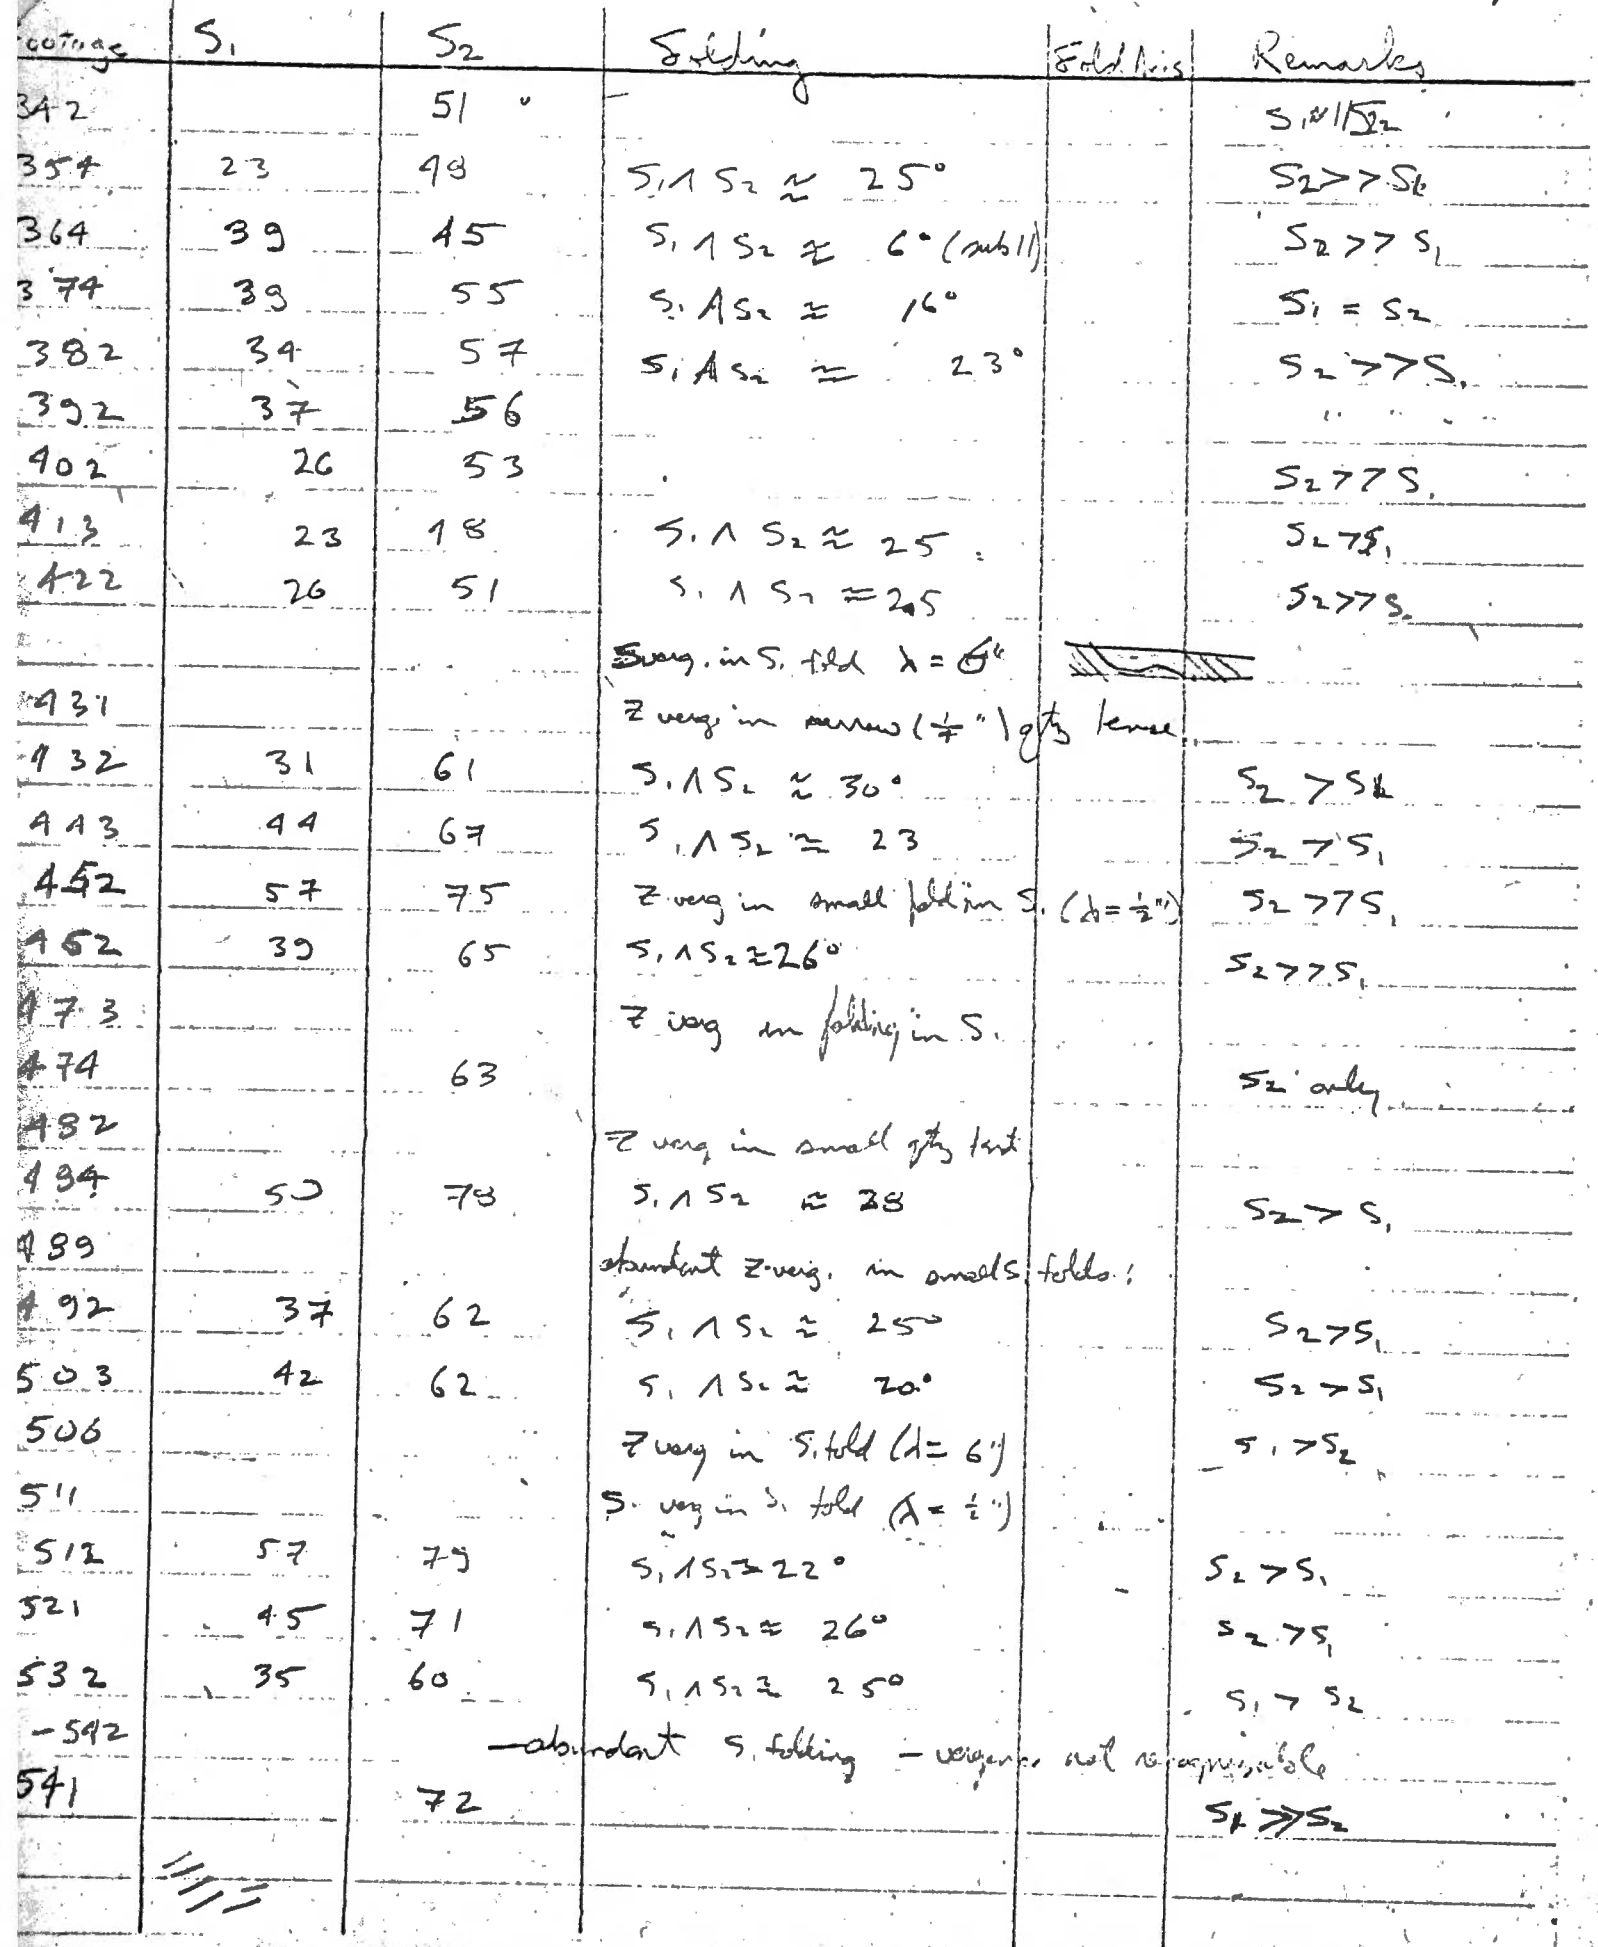 ootage S₁ S₂ Folding Fold Axis Remarks
342 51° S₁≈∥S₂
354 23 48 S₁∧S₂ ≈ 25° S₂>>S₁
364 39 45 S₁∧S₂ ≈ 6° (sub∥) S₂>>S₁
374 39 55 S₁∧S₂ ≈ 16° S₁ = S₂
382 34 57 S₁∧S₂ ≈ 23° S₂>>S₁
392 37 56 " "
402 26 53 S₂>>S₁
413 23 48 S₁∧S₂ ≈ 25 S₂>S₁
422 26 51 S₁∧S₂ ≈ 25 S₂>>S₁
S verg. in S₁ fold λ = 6"
431 Z verg. in narrow ( ") qtz lense
432 31 61 S₁∧S₂ ≈ 30° S₂ > S₁
443 44 67 S₁∧S₂ ≈ 23 S₂ > S₁
452 57 75 Z verg in small fold in S₁ (λ = ½") S₂>>S₁
462 39 65 S₁∧S₂ ≈ 26° S₂>>S₁
473 Z verg in folding in S₁
474 63 S₂ only
482 Z verg in small qtz
484 50 78 S₁∧S₂ ≈ 28 S₂ > S₁
489 abundant Z-verg. in small S₁ folds
492 37 62 S₁∧S₂ ≈ 25° S₂>S₁
503 42 62 S₁∧S₂ ≈ 20° S₂>S₁
506 Z verg in S₁ fold (λ = 6") S₁>S₂
511 S verg in S₁ fold (λ = ½")
512 57 79 S₁∧S₂ ≈ 22° S₂>S₁
521 45 71 S₁∧S₂ ≈ 26° S₂>S₁
532 35 60 S₁∧S₂ ≈ 25° S₁ > S₂
-542 — abundant S₁ folding — vergence not recognisable
541 72 S₁ >> S₂